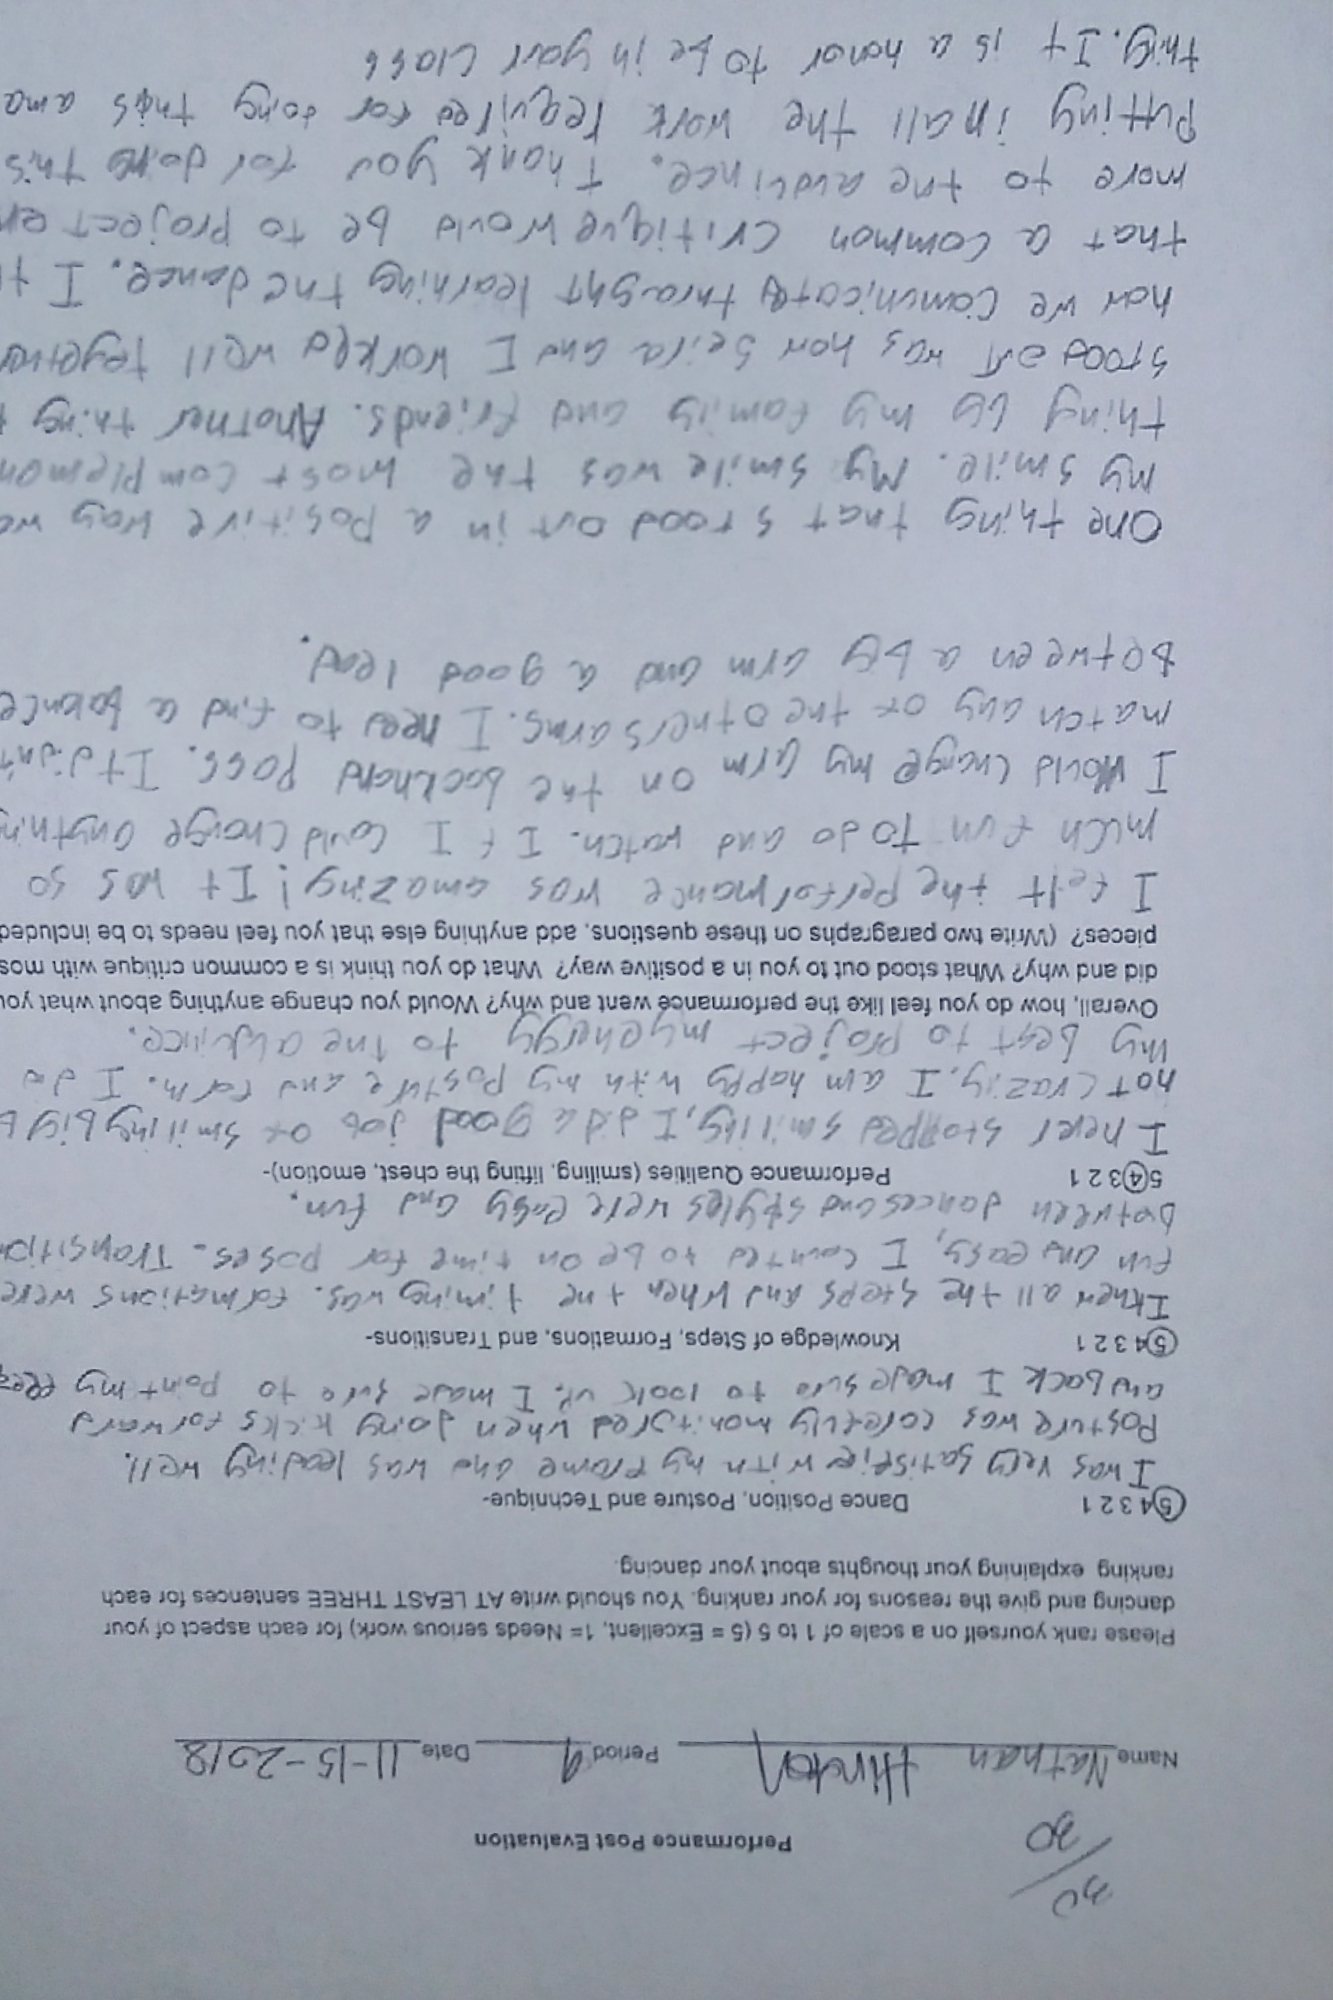 30/30
Performance Post Evaluation
Name Nathan Hinton Period 9 Date 11-15-2018
Please rank yourself on a scale of 1 to 5 (5 = Excellent, 1= Needs serious work) for each aspect of your
dancing and give the reasons for your ranking. You should write AT LEAST THREE sentences for each
ranking explaining your thoughts about your dancing.
5 4 3 2 1 Dance Position, Posture and Technique-
I was very satisfie with my frame and was leading well.
Posture was carefuly monitored when doing kicks forward
and back I made sure to look up. I made sure to point my
5 4 3 2 1 Knowledge of Steps, Formations, and Transitions-
I knew all the steps and when the timing was. formations were
fun and easy, I counted to be on time for poses. Transition
between dances and styles were easy and fun.
5 4 3 2 1 Performance Qualities (smiling, lifting the chest, emotion)-
I never stopped smilling, I did a good job of smiling big b
not crazily. I am happy with my posture and form. I do
my best to project my energy to the audince.
Overall, how do you feel like the performance went and why? Would you change anything about what you
did and why? What stood out to you in a positive way? What do you think is a common critique with mos
pieces? (Write two paragraphs on these questions, add anything else that you feel needs to be included
I felt the performance was amazing! It was so
much fun to do and watch. If I could change anything
I would change my arm on the backhand pose. It didn't
match any of the others arms. I need to find a balance
between a big arm and a good lead.
One thing that stood out in a positive way wa
my smile. My smile was the most complemen
thing by my family and friends. Another thing t
stood out was how Seila and I worked well together
how we comunicated throught learning the dance. I t
that a common critique would be to project en
more to the audvince. Thank you for doing this
Putting in all the work required for doing this ama
thing. It is a honor to be in your class